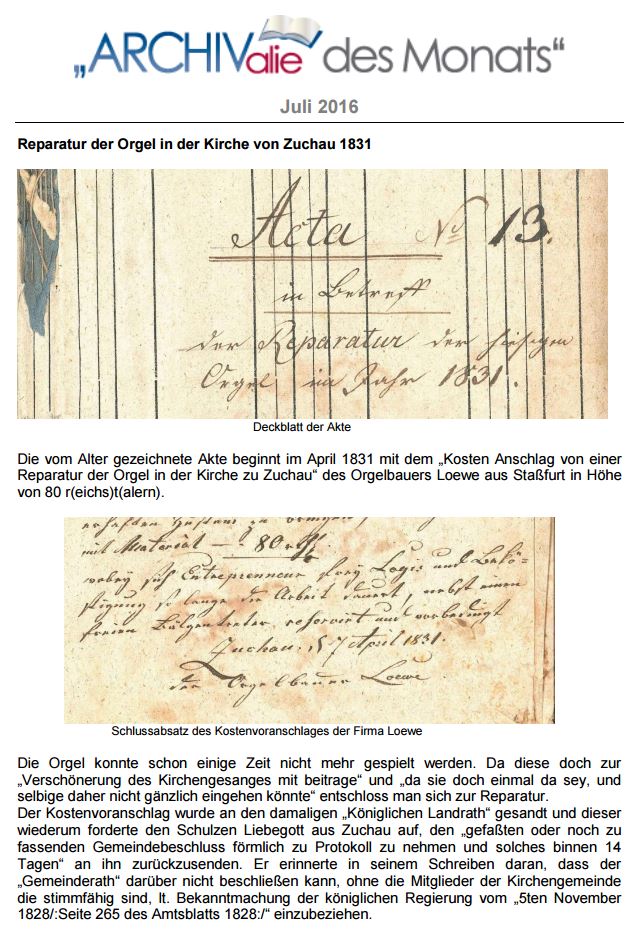 „ARCHIValie des Monats“
Juli 2016
Reparatur der Orgel in der Kirche von Zuchau 1831
Acta No 13.
in Betreff
der Reparatur der hiesigen
Orgel im Jahr 1831.
Deckblatt der Akte
Die vom Alter gezeichnete Akte beginnt im April 1831 mit dem „Kosten Anschlag von einer
Reparatur der Orgel in der Kirche zu Zuchau“ des Orgelbauers Loewe aus Staßfurt in Höhe
von 80 r(eichs)t(alern).
mit Material — 80
Entrepreneur Logis und Bekö-
stigung so lange die Arbeit dauert, nebst einen
freien Bälgentreter, reservirt und vorbedingt
Zuchau, 7 April 1831.
der Orgelbauer Loewe
Schlussabsatz des Kostenvoranschlages der Firma Loewe
Die Orgel konnte schon einige Zeit nicht mehr gespielt werden. Da diese doch zur
„Verschönerung des Kirchengesanges mit beitrage“ und „da sie doch einmal da sey, und
selbige daher nicht gänzlich eingehen könnte“ entschloss man sich zur Reparatur.
Der Kostenvoranschlag wurde an den damaligen „Königlichen Landrath“ gesandt und dieser
wiederum forderte den Schulzen Liebegott aus Zuchau auf, den „gefaßten oder noch zu
fassenden Gemeindebeschluss förmlich zu Protokoll zu nehmen und solches binnen 14
Tagen“ an ihn zurückzusenden. Er erinnerte in seinem Schreiben daran, dass der
„Gemeinderath“ darüber nicht beschließen kann, ohne die Mitglieder der Kirchengemeinde
die stimmfähig sind, lt. Bekanntmachung der königlichen Regierung vom „5ten November
1828/:Seite 265 des Amtsblatts 1828:/“ einzubeziehen.